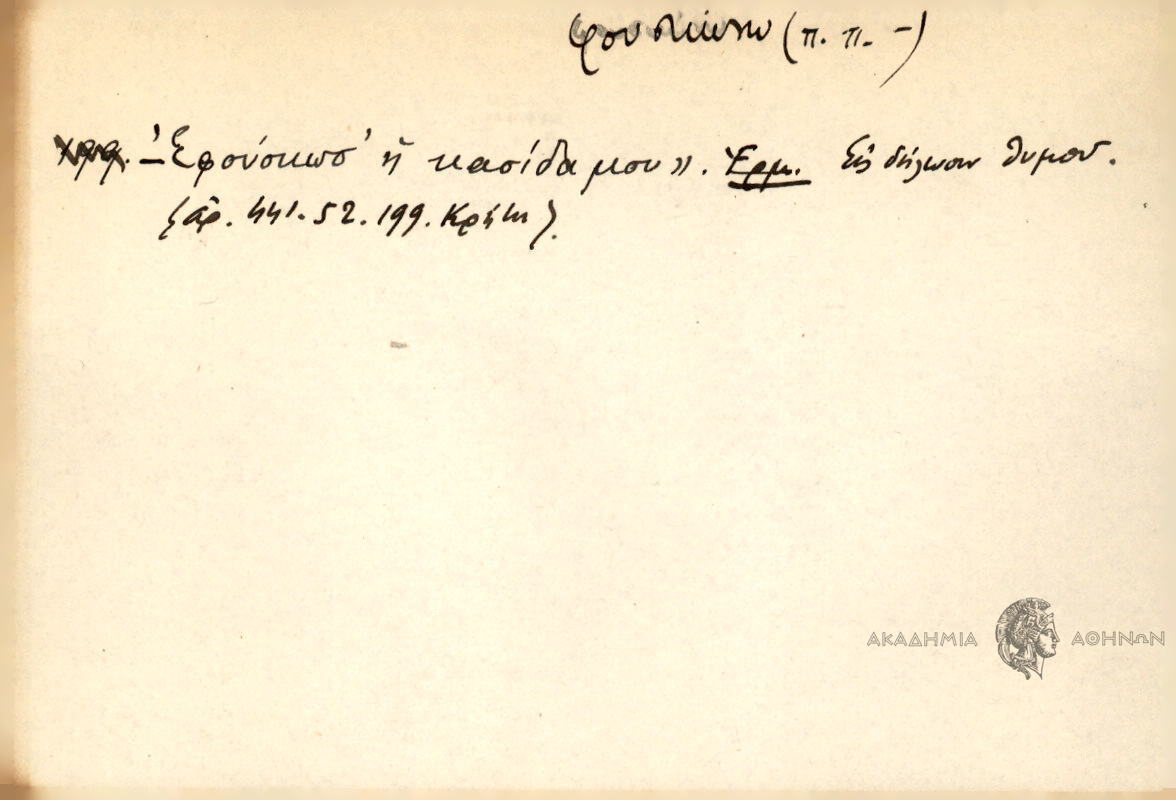 φουσκώνω (π. π. –)
– Ἐφούσκωσ' ἡ κασίδα μου». Ἑρμ. Εἰς δήλωσιν θυμοῦ.
(ἀρ. 441. 52. 199. Κρήτη).
ΑΚΑΔΗΜΙΑ ΑΘΗΝΩΝ